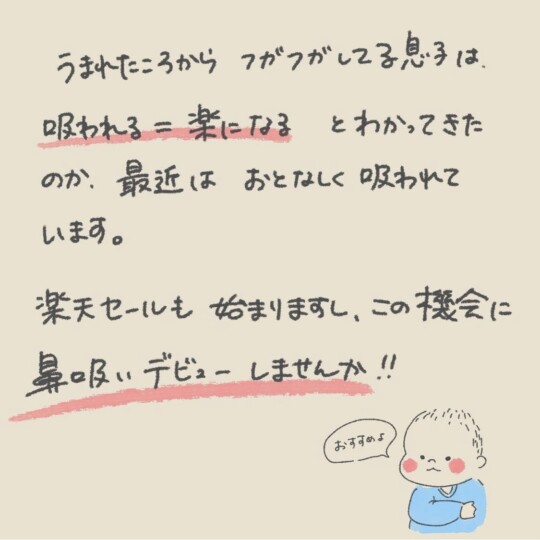 うまれたころから フガフガしてる息子は、
吸われる＝楽になる とわかってきた
のか、最近は おとなしく吸われて
います。
楽天セールも 始まりますし、この機会に
鼻吸いデビューしませんか!!
おすすめよ